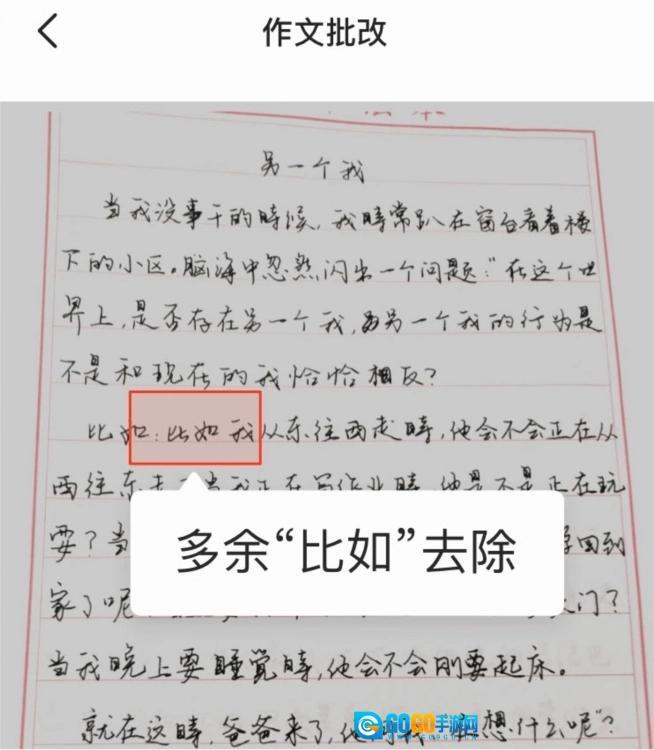 作文批改
另一个我
当我没事干的時候，我時常趴在窗台看着楼
下的小区。脑海中忽然闪出一个问题："在这个世
界上，是否存在另一个我，而另一个我的行为是
不是和现在的我恰恰相反？
比如：比如我从东往西走時，他会不会正在从
西往东走？当我正在写作业時，他是不是正在玩
耍？当
多余“比如”去除
学回到
家了呢
大门？
当我晚上要睡觉時，他会不会刚要起床。
就在这時，爸爸来了，他问我
想什么呢"？
GOGO手游网